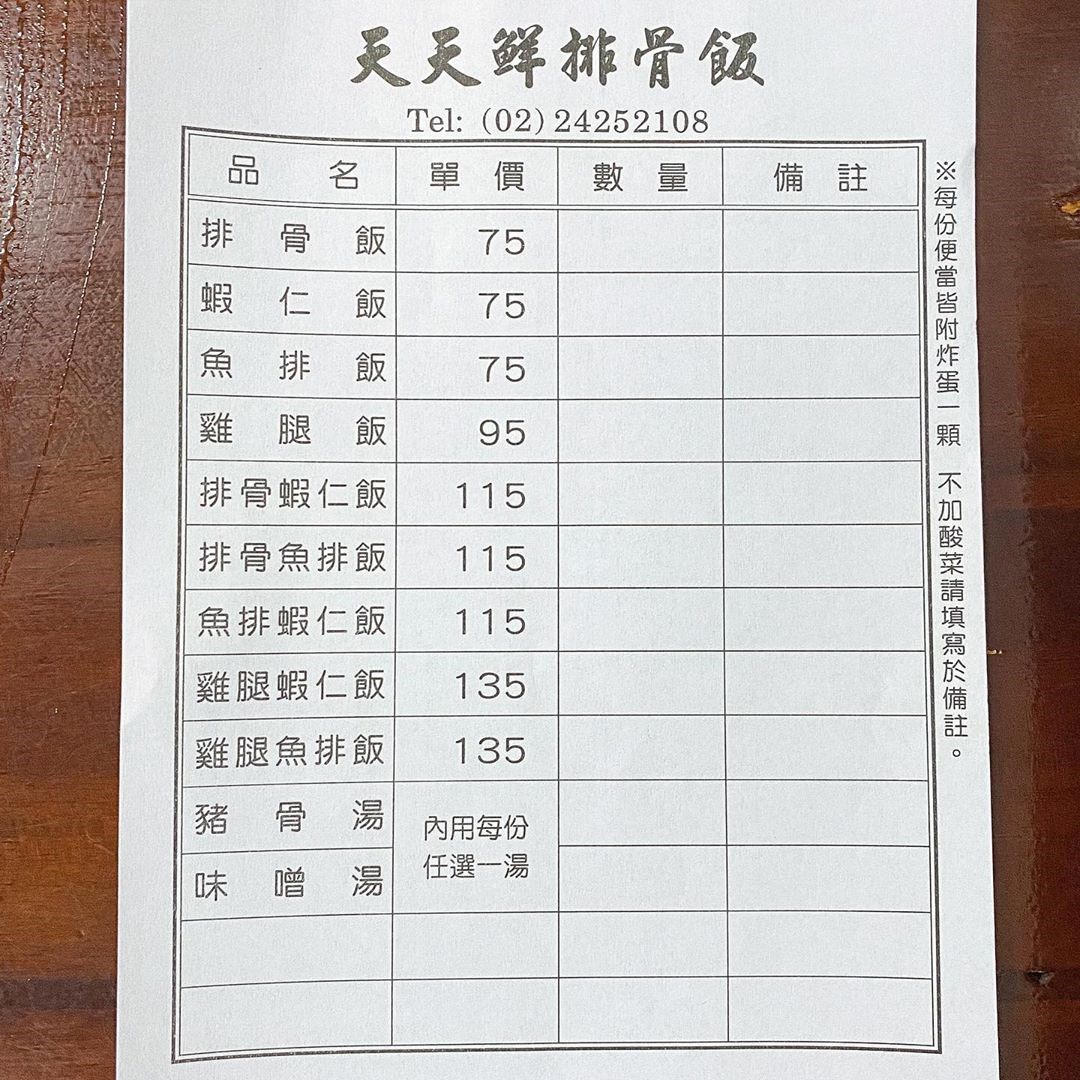 天天鮮排骨飯
Tel: (02) 24252108
品名 單價 數量 備註
排骨飯 75
蝦仁飯 75
魚排飯 75
雞腿飯 95
排骨蝦仁飯 115
排骨魚排飯 115
魚排蝦仁飯 115
雞腿蝦仁飯 135
雞腿魚排飯 135
豬骨湯
味噌湯
內用每份
任選一湯
※每份便當皆附炸蛋一顆 不加酸菜請填寫於備註。